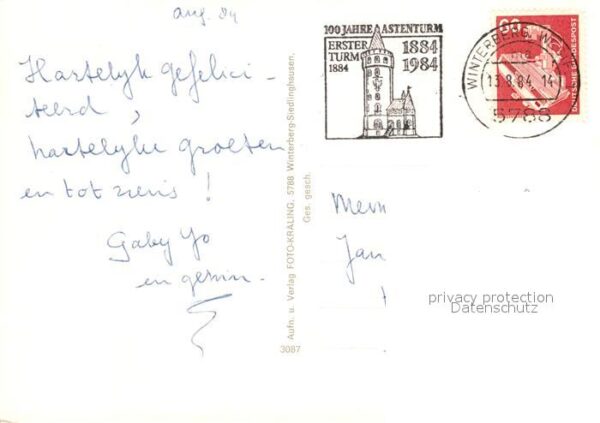 aug. 84
Hartelijk gefelici-
teerd,
hartelijke groeten
en tot ziens!
Gaby Jo
en gezin.
Aufn. u. Verlag FOTO-KRALING, 5788 Winterberg-Siedlinghausen.
Ges. gesch.
3087
100 JAHRE ASTENTURM
ERSTER
TURM
1884
1884
1984
WINTERBERG, WESTF
13.8.84. 14
5788
DEUTSCHE BUNDESPOST
Mevr
Jan
privacy protection
Datenschutz